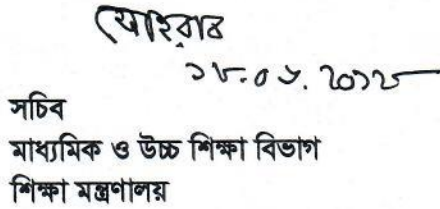 সোহরাব
১৮.০১.২০১৮
সচিব
মাধ্যমিক ও উচ্চ শিক্ষা বিভাগ
শিক্ষা মন্ত্রণালয়